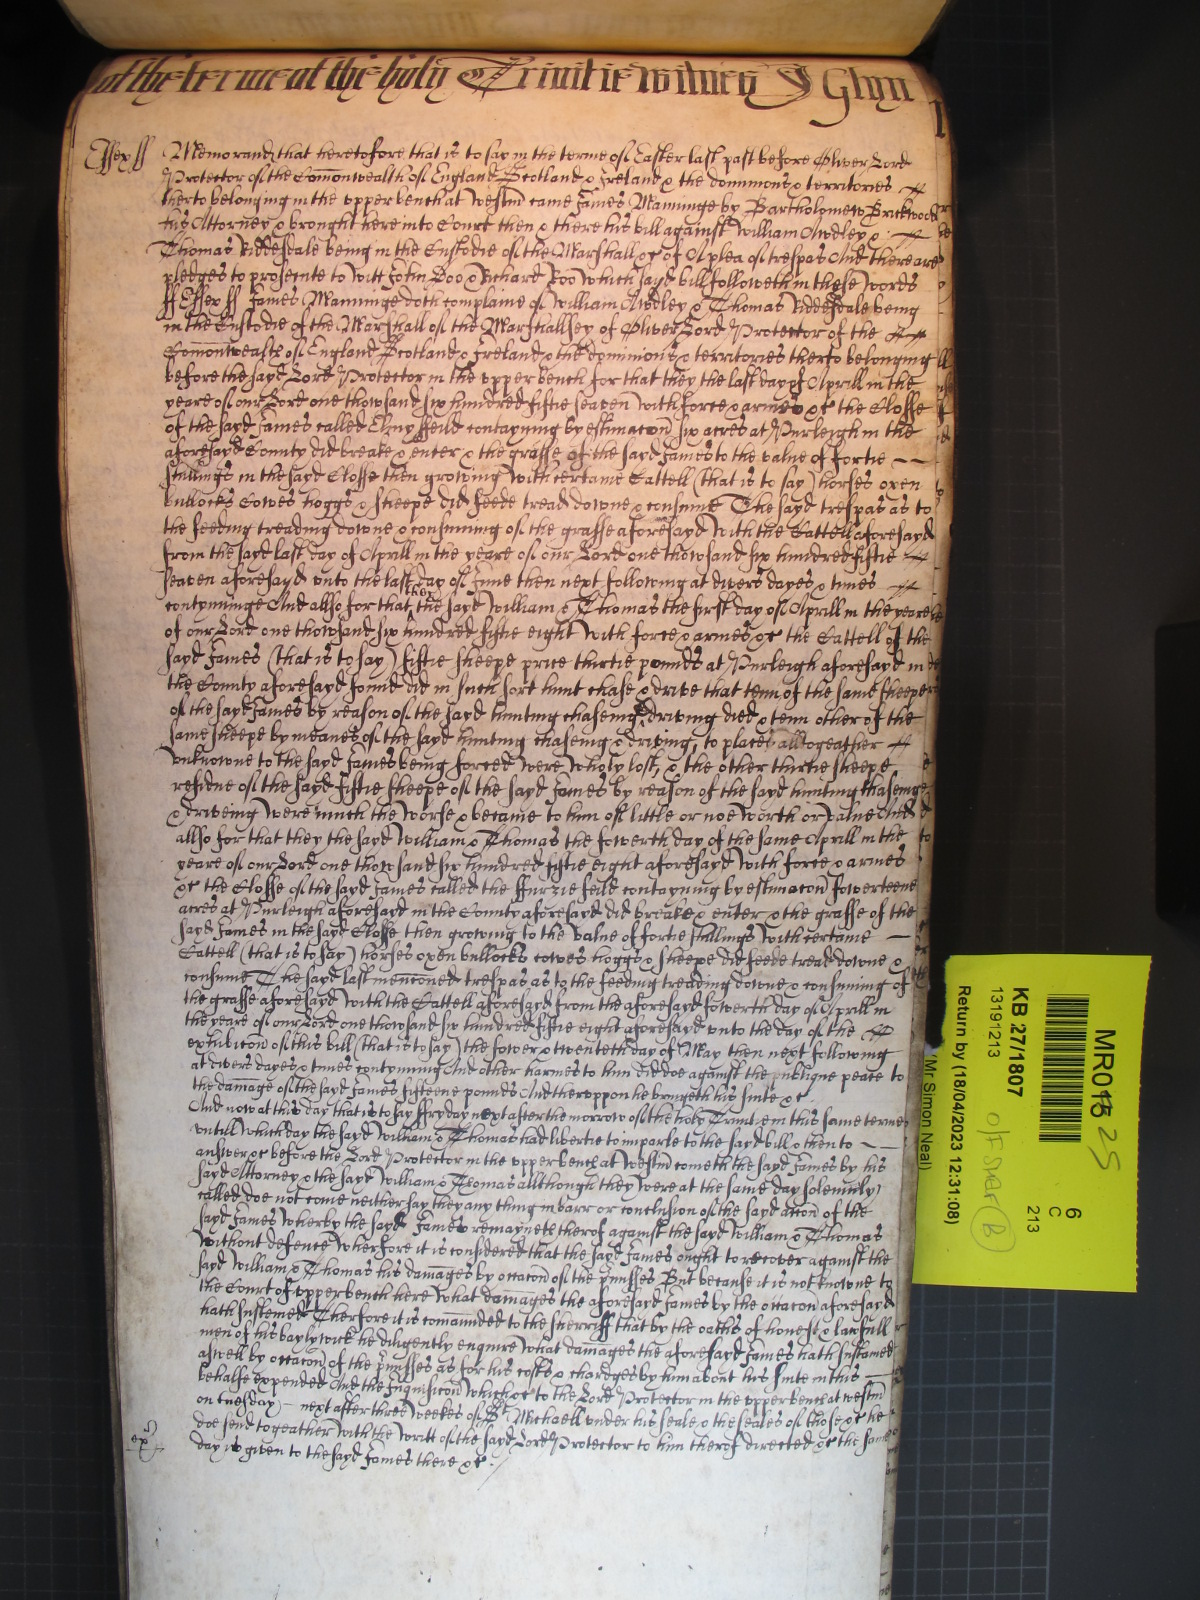 of the terme of the holy Trinitie witnes J Glyn
Essex ss Memorand that heretofore that is to say in the terme of Easter last past before Oliver Lord
Protector of the Comonwealth of England Scotland & Ireland & the dominions & territories
therto belonging in the upper bench at Westm came James Manninge by Bartholomew Brickwood
his Attorney & brought here into Court then & there his bill against William Awdley &
Thomas Riddesdale being in the Custodie of the Marshall &c of A plea of trespas And there are
pledges to prosecute to witt John Doo & Richard Roo Which sayd bill followeth in these Words
ss Essex ss James Manninge doth complaine of William Awdley & Thomas Riddesdale being
in the Custodie of the Marshall of the Marshallsey of Oliver Lord Protector of the
Comonwealth of England Scotland & Ireland & the dominions & territories therto belonging
before the sayd Lord Protector in the upper bench for that they the last day of Aprill in the
yeare of our Lord one thowsand six hundred fiftie seaven with force & armes &c the Closse
of the sayd James called Elmy ffeild contayning by estimacon six acres at Purleigh in the
aforesayd County did breake & enter & the grasse of the sayd James to the value of fortie
shillings in the sayd Closse then growing with certaine Cattell (that is to say) horses oxen
bullocks Cowes hoggs & sheepe did feede tread downe & consume The sayd trespas as to
the feeding treading downe & consuming of the grasse aforesayd with the Cattell aforesayd
from the sayd last day of Aprill in the yeare of our Lord one thowsand six hundred fiftie
seaven aforesayd unto the last day of June then next following at divers dayes & times
contynninge And allso for that they the sayd William & Thomas the first day of Aprill in the yeare
of our Lord one thowsand six hundred fiftie eight with force & armes &c the Cattell of the
sayd James (that is to say) fiftie sheepe price thirtie pounds at Purleigh aforesayd in
the County aforesayd found did in such sort hunt chase & drive that tenn of the same sheepe
of the sayd James by reason of the sayd hunting chaseing & driving died & tenn other of the
same sheepe by meanes of the sayd hunting chaseing & driving, to places alltogeather
unknowne to the sayd James being forced were wholy lost, & the other thirtie sheepe
residue of the sayd fiftie sheepe of the sayd James by reason of the sayd hunting chaseinge
& driveing were much the worse & became to him of little or noe worth or value And
allso for that they the sayd William & Thomas the fowerth day of the same Aprill in the
yeare of our Lord one thowsand six hundred fiftie eight aforesayd with force & armes
&c the Closse of the sayd James called the ffurzie feild contayning by estimacon fowerteene
acres at Purleigh aforesayd in the County aforesayd did breake & enter & the grasse of the
sayd James in the sayd Closse then growing to the value of fortie shillings with certaine
Cattell (that is to say) horses oxen bullocks cowes hoggs & sheepe did feede tread downe &
consume The sayd last menconed trespas as to the feeding treading downe & consuming of
the grasse aforesayd with the Cattell aforesayd from the aforesayd fowerth day of Aprill in
the yeare of our Lord one thowsand six hundred fiftie eight aforesayd unto the day of the
exhibicon of this bill (that is to say) the fower & twenteth day of May then next following
at divers dayes & times contynuing And other harmes to him did doe against the publique peace to
the damage of the sayd James fifteene pounds And thereuppon he bringeth his suite &c
And now at this day that is to say ffryday next after the morrow of the holy Trinitie in this same terme
untill which day the sayd William & Thomas had libertie to imparle to the sayd bill & then to
answer &c before the Lord Protector in the upper bench at Westm cometh the sayd James by his
sayd Attorney & the sayd William & Thomas allthough they were at the same day solemnly
called doe not come neither say they any thing in barr or conclusion of the sayd accon of the
sayd James wherby the sayd James remayneth therof against the sayd William & Thomas
without defence Wherfore it is considered that the sayd James ought to recover against the
sayd William & Thomas his damages by occacon of the pmisses But because it is not knowne to
the Court of upper bench here what damages the aforesayd James by the occacon aforesayd
hath susteined Therfore it is comaunded to the sherriff that by the oaths of honest & lawfull
men of his baylywick he diligently enquire what damages the aforesayd James hath susteined
aswell by occacon of the pmisses as for his costs & chardges by him about his suite in this
behalfe expended And the Inquisicon which &c to the Lord Protector in the upper bench at westm
on tuesday next after three weekes of St Michaell under his seale & the seales of those &c he
doe send togeather with the Writt of the sayd Lord Protector to him therof directed &c the same
day is given to the sayd James there &c
MR018 25
6
C
213
KB 27/1807
13191213
O/F Staff (B)
Return by (18/04/2023 12:31:08)
(Mr Simon Neal)